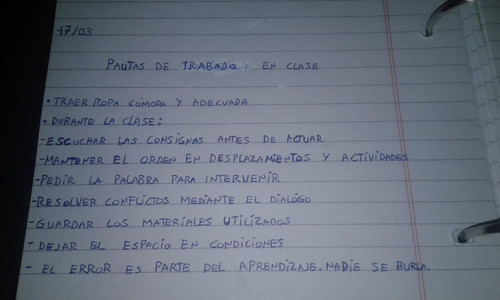 17/03
PAUTAS DE TRABAJO, EN CLASE
• TRAER ROPA COMODA Y ADECUADA
• DURANTE LA CLASE:
-ESCUCHAR LAS CONSIGNAS ANTES DE ACTUAR
-MANTENER EL ORDEN EN DESPLAZAMIENTOS Y ACTIVIDADES
-PEDIR LA PALABRA PARA INTERVENIR
-RESOLVER CONFLICTOS MEDIANTE EL DIALÓGO
-GUARDAR LOS MATERIALES UTILIZADOS
- DEJAR EL ESPACIO EN CONDICIONES
- EL ERROR ES PARTE DEL APRENDIZAJE. NADIE SE BURLA.